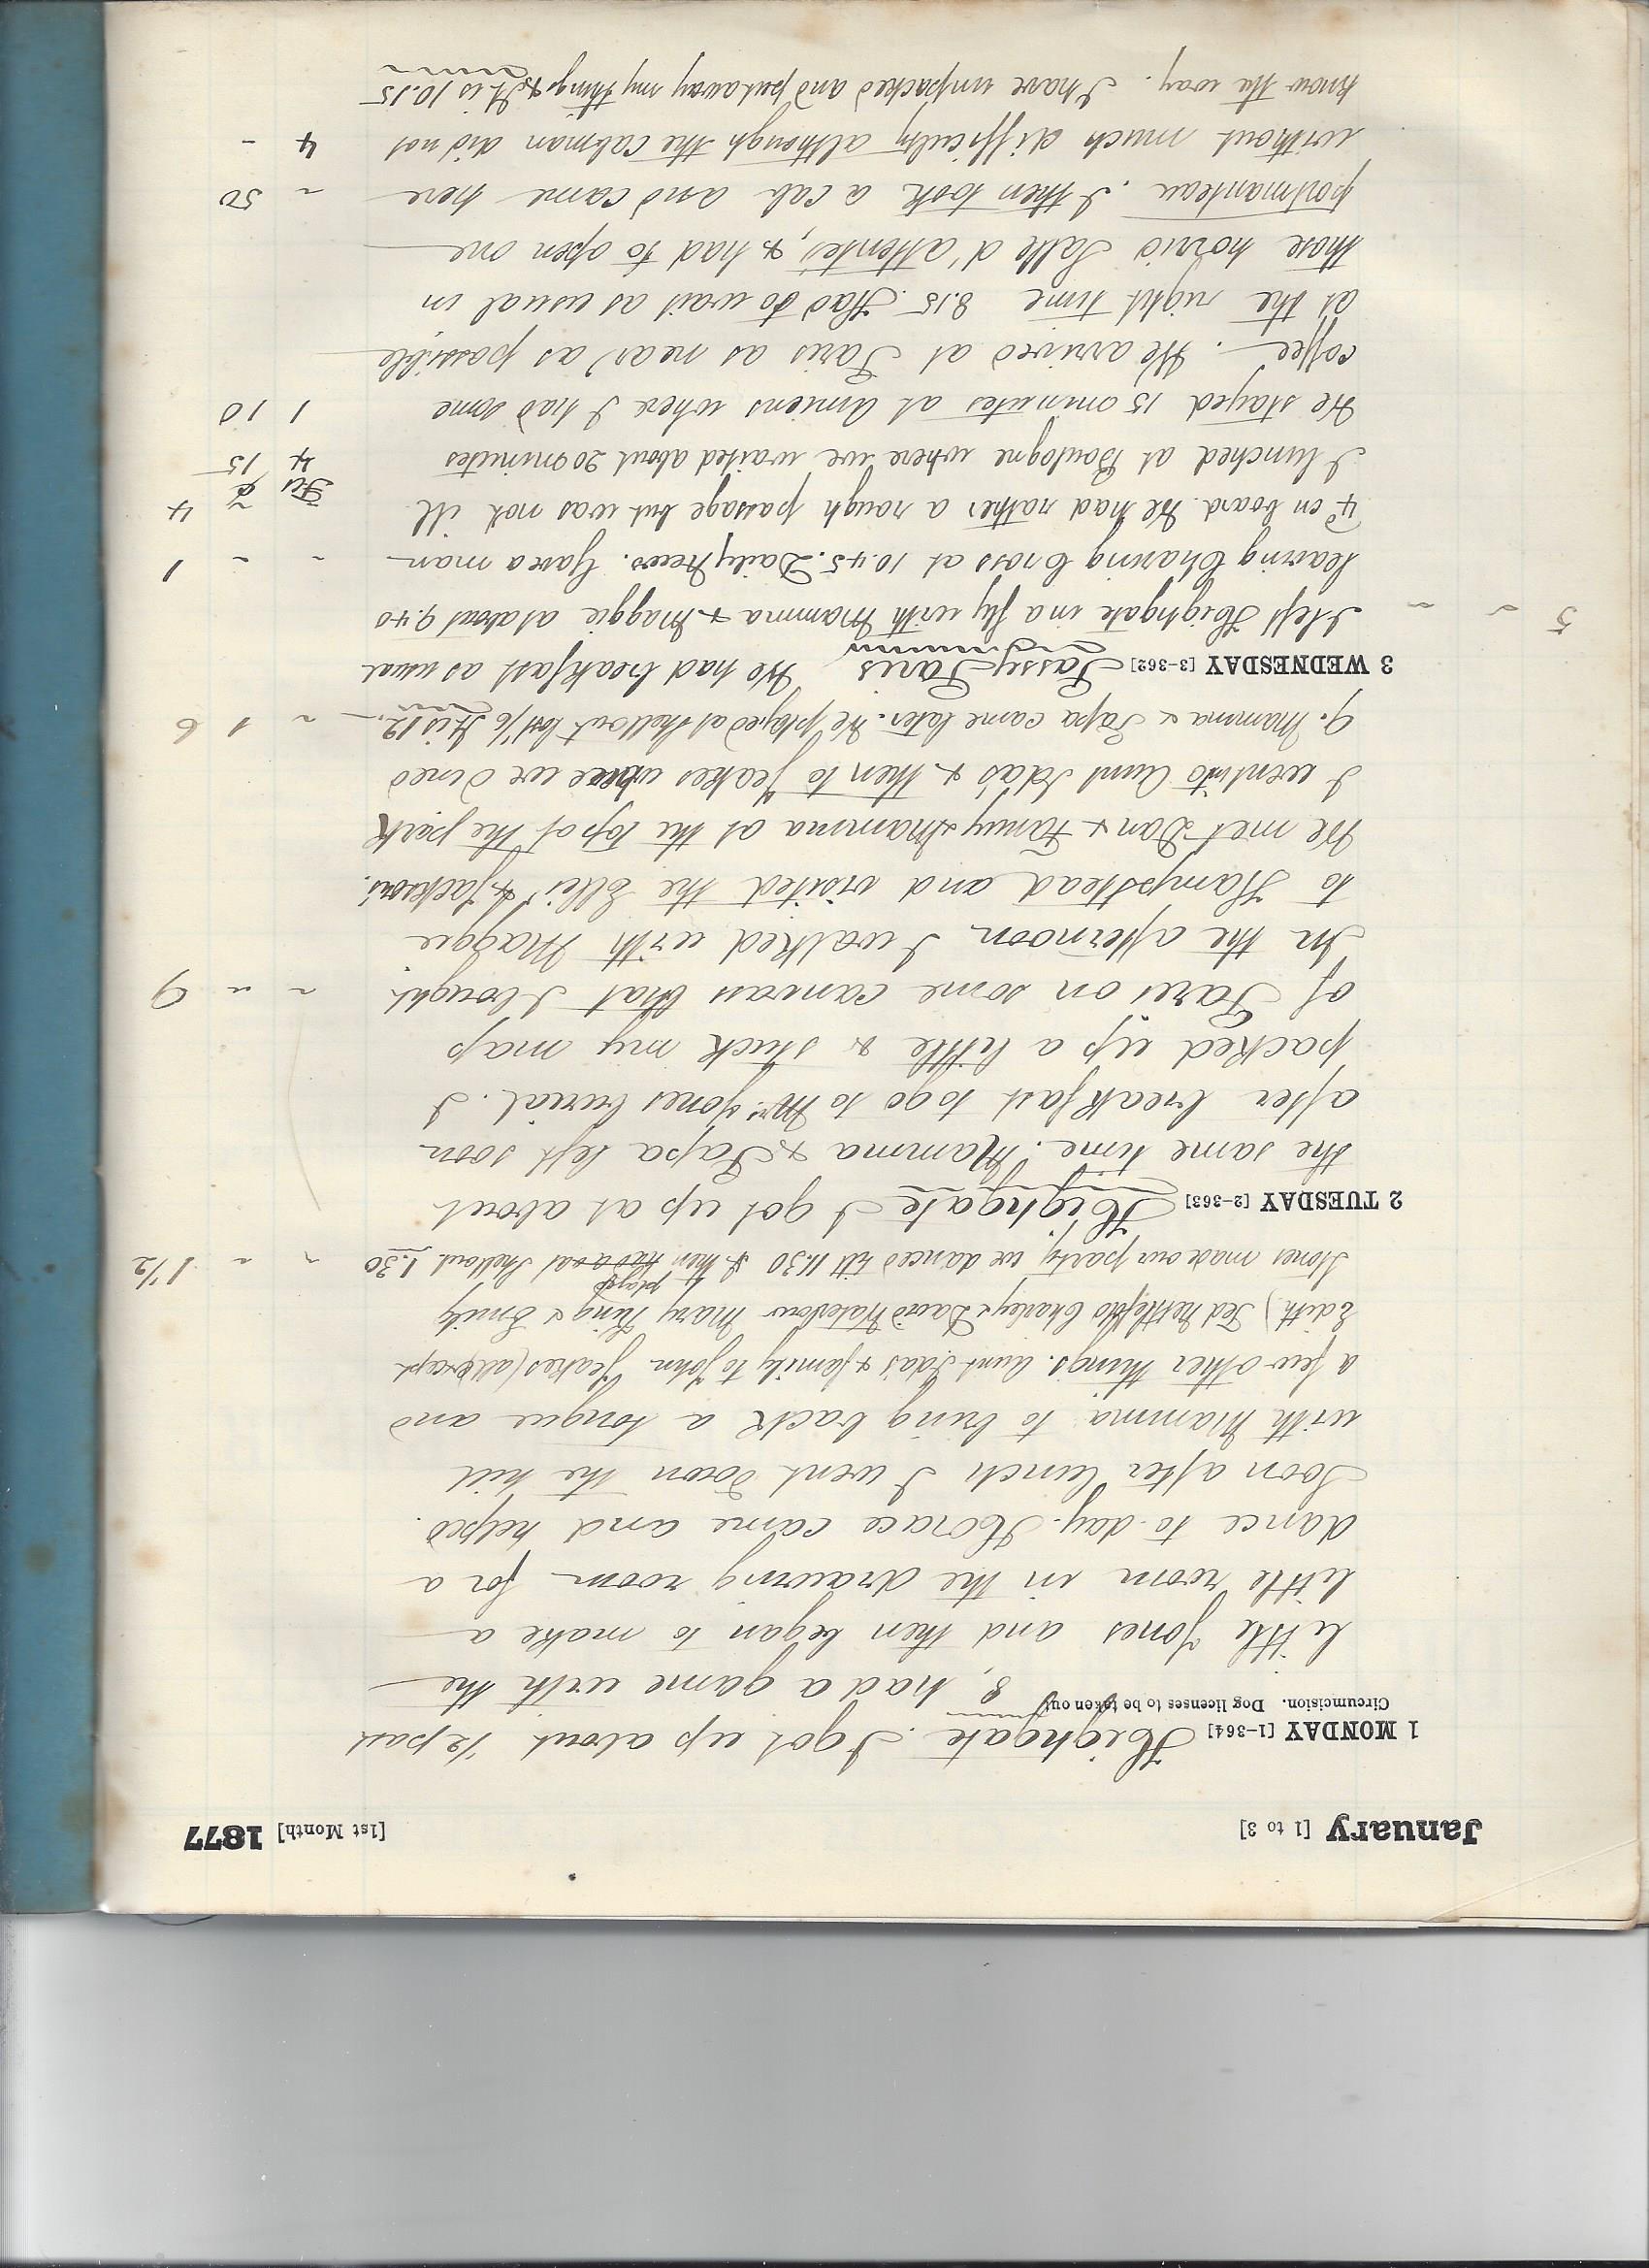 January [1 to 3] [1st Month] 1877
1 MONDAY [1-364] Highgate. I got up about ½ past
Circumcision. Dog licenses to be taken out
8, had a game with the
little Jones and then began to make a
little room in the drawing room for a
dance to-day. Horace came and helped.
Soon after lunch I went down the hill
with Mamma to bring back a tongue and
a few other things. Aunt Ida's & family to John Yeakes (all except
Edith) Ted Nettlefold Charley & David Waterlow Mary King & Emily
Jones made our party we danced till 11.30 & then had a played at Shellout 1.30 ~ ~ 1½
2 TUESDAY [2-363] Highgate I got up at about
the same time. Mamma & Papa left soon
after breakfast to go to Mrs Jones burial. I
packed up a little & stuck my map
of Paris on some canvas that I bought ~ ~ 9
In the afternoon I walked with Maggie
to Hampstead and visited the Ellis' & Jacksons.
We met Dan & Fanny & Mamma at the top of the park
I went to Aunt Ida's & then to Yeakes where we dined
9. Mamma & Papa came later. We played at Shellout lost 1/6 It is 12. ~ 1 6
3 WEDNESDAY [3-362] Passy Paris We had breakfast as usual
5 ~ ~ I left Highgate in a fly with Mamma & Maggie at about 9.40
leaving Charing Cross at 10.45. Daily News. Gave a man ~ ~ 1
4d on board. We had rather a rough passage but was not ill ~ 4
I lunched at Boulogne where we waited about 20 minutes 4 15
We stayed 15 minutes at Amiens where I had some 1 10
coffee. We arrived at Paris as near as possible
at the right time 8.15. Had to wait as usual in
those horrid Salle d'attentes, & had to open one
portmanteau. I then took a cab and came here ~ 50
without much difficulty although the cabman did not 4 -
know the way. I have unpacked and put away my things & It is 10.15